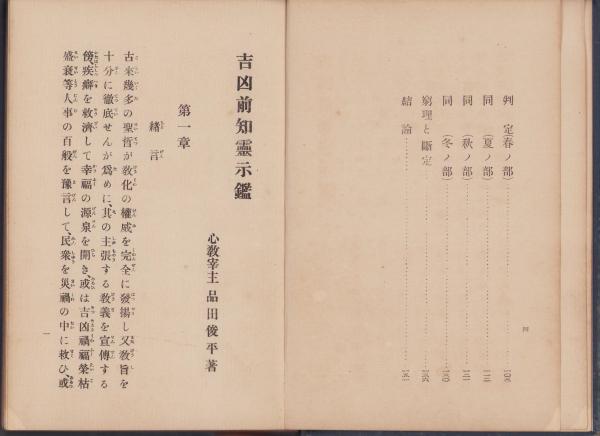 判定(春ノ部)
同(夏ノ部)
同(秋ノ部)
同(冬ノ部)
窮理と斷定
結論
四
吉凶前知靈示鑑
心敎宰主 品田俊平著
第一章
緒言
古來幾多の聖哲が敎化の權威を完全に發揚し又敎旨を
十分に徹底せんが爲めに、其の主張する敎義を宣傳する
傍、疾癖を救濟して幸福の源泉を開き、或は吉凶禍福榮枯
盛衰等人事の百般を豫言して、民衆を災禍の中に救ひ、或
一